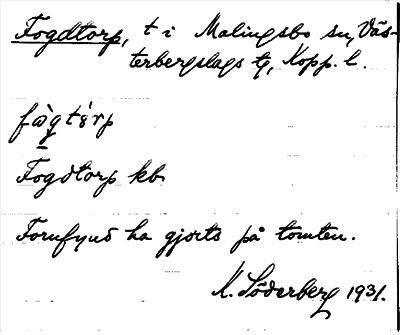 Fogdtorp, t i Malingsbo sn, Väs-
terbergslags tg, Kopp. l.
fàgtèrp
Fogdtorp kb
Fornfynd ha gjorts på tomten.
K. Söderberg 1931.